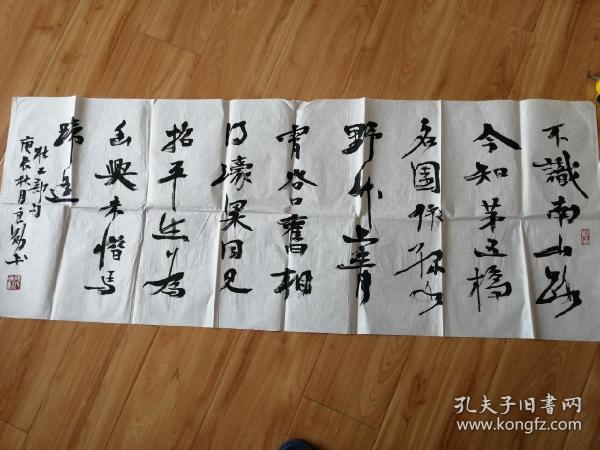 不識南山路
今知第五橋
名園依綠水
野竹上青
霄谷口舊相
得濠梁同見
招平生为
幽興未惜馬
蹄遥
杜工部句
庚辰秋月书
孔夫子旧书网
WWW.KONGFZ.COM